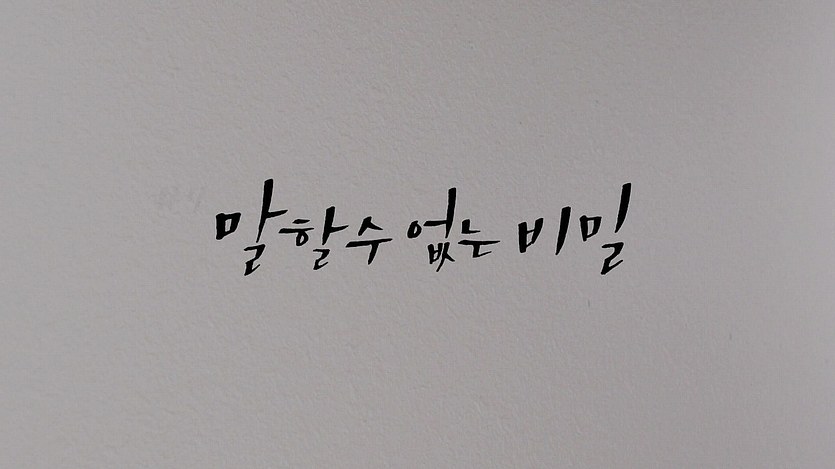 말할수 없는 비밀